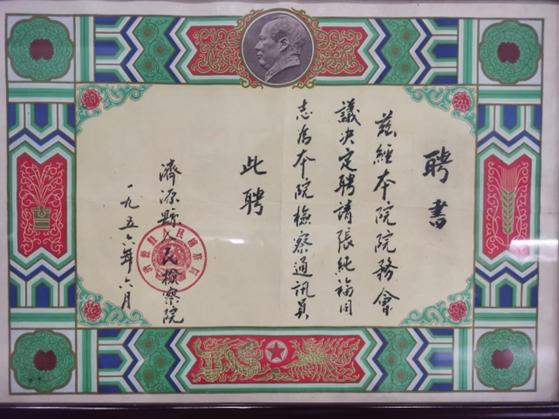 聘書
茲經本院院務會
議決定聘請張純福同
志為本院檢察通訊員
此聘
濟源縣人民檢察院
一九五六年六月